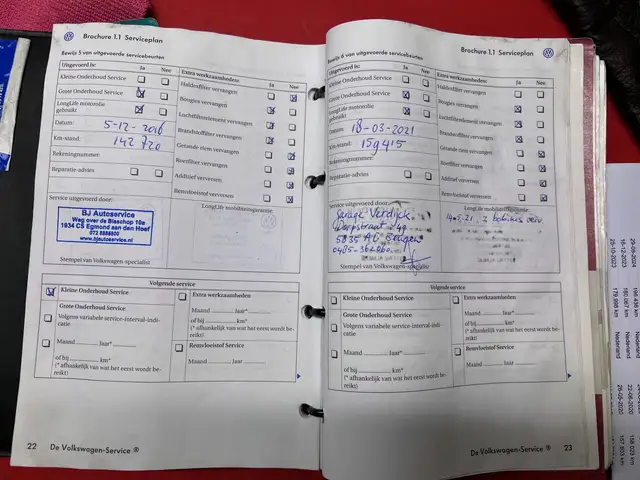 Brochure 1.1 Serviceplan
Bewijs 5 van uitgevoerde servicebeurten
Uitgevoerd is: Ja Nee
Kleine Onderhoud Service
Grote Onderhoud Service
LongLife motorolie
gebruikt
Datum: 5-12-2016
Km-stand: 142 720
Rekeningnummer:
Reparatie-advies
Extra werkzaamheden: Ja Nee
Haldexfilter vervangen
Bougies vervangen
Luchtfilterelement vervangen
Brandstoffilter vervangen
Getande riem vervangen
Roetfilter vervangen
Additief verversen
Remvloeistof verversen
Service uitgevoerd door:
BJ Autoservice
Weg over de Bisschop 10a
1934 CS Egmond aan den Hoef
072 8888800
www.bjautoservice.nl
Stempel van Volkswagen-specialist
LongLife mobiliteitsgarantie
Volgende service
Kleine Onderhoud Service
Grote Onderhoud Service
Volgens variabele service-interval-indi-
catie
Maand ........... Jaar*
of bij ........... km*
(* afhankelijk van wat het eerst wordt be-
reikt)
Extra werkzaamheden
Maand ........... Jaar*
of bij ........... km*
(* afhankelijk van wat het eerst wordt be-
reikt)
Remvloeistof Service
Maand ........... Jaar
22 De Volkswagen-Service ®
Brochure 1.1 Serviceplan
Bewijs 6 van uitgevoerde servicebeurten
Uitgevoerd is: Ja Nee
Kleine Onderhoud Service
Grote Onderhoud Service
LongLife motorolie
gebruikt
Datum: 18-03-2021
Km-stand: 159415
Rekeningnummer:
Reparatie-advies
Extra werkzaamheden: Ja Nee
Haldexfilter vervangen
Bougies vervangen
Luchtfilterelement vervangen
Brandstoffilter vervangen
Getande riem vervangen
Roetfilter vervangen
Additief verversen
Remvloeistof verversen
Service uitgevoerd door:
Garage Verdijk
Dorpstraat
Stempel van Volkswagen-specialist
LongLife mobiliteitsgarantie
Volgende service
Kleine Onderhoud Service
Grote Onderhoud Service
Volgens variabele service-interval-indi-
catie
Maand ........... Jaar*
of bij ........... km*
(* afhankelijk van wat het eerst wordt be-
reikt)
Extra werkzaamheden
Maand ........... Jaar*
of bij ........... km*
(* afhankelijk van wat het eerst wordt be-
reikt)
Remvloeistof Service
Maand ........... Jaar
De Volkswagen-Service ® 23